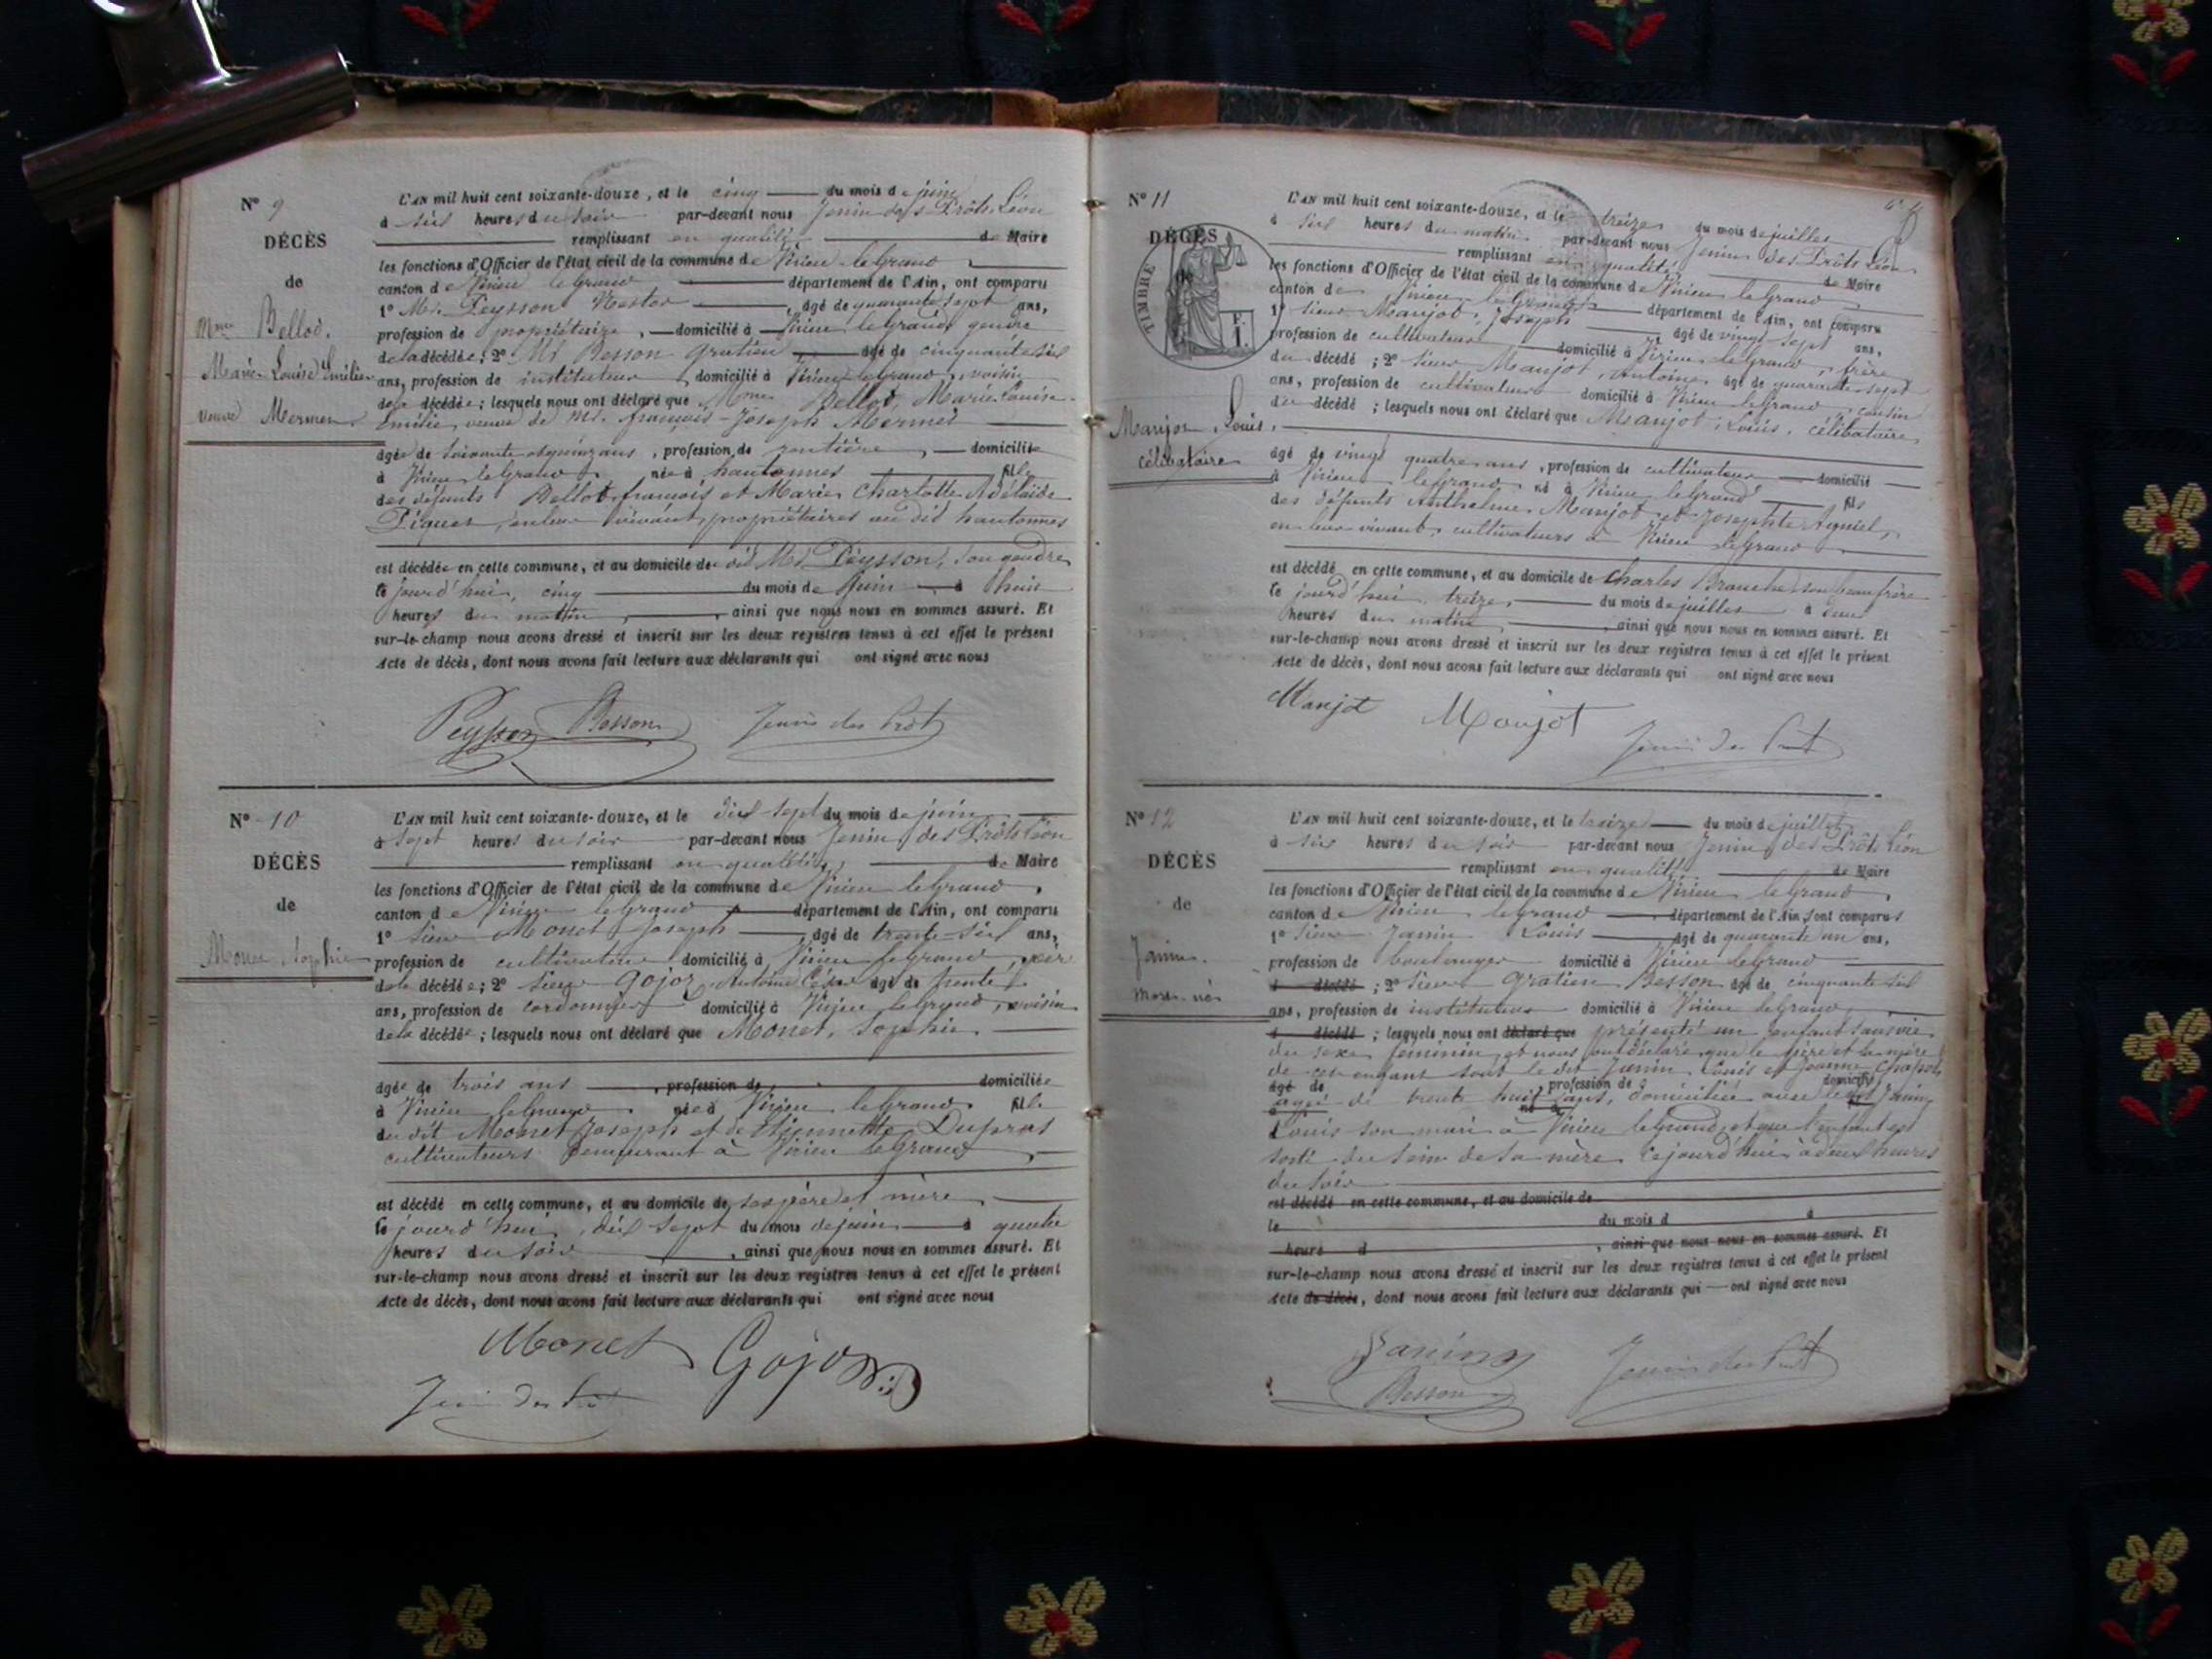 N° 9
DÉCÈS
de
Mme Bellod.
Marie Louise Emilie
veuve Mermet
L'AN mil huit cent soixante-douze, et le cinq du mois de juin
à six heures du soir par-devant nous Jenin des Prôts Léon
remplissant en qualité de Maire
les fonctions d'Officier de l'état civil de la commune de Virieu le Grand
canton de Virieu le Grand département de l'Ain, ont comparu
1° Mr. Peysson Nestor, âgé de quarante sept ans,
profession de propriétaire, domicilié à Virieu le Grand, gendre
de la décédée; 2° Mr Besson Gratien âgé de cinquante six
ans, profession de instituteur domicilié à Virieu le Grand, voisin
de la décédée; lesquels nous ont déclaré que Mme Bellod, Marie Louise
Emilie, veuve de Mr. françois-Joseph Mermet
âgée de soixante et quinze ans, profession de rentière, domiciliée
à Virieu le Grand, née à hautonnes fille
des défunts Bellod françois et Marie Charlotte Adélaïde
Piquet, en leur vivant, propriétaires au dit hautonnes
est décédée en cette commune, et au domicile du dit Mr Peysson, son gendre
le jourd'hui, cinq du mois de Juin à huit
heures du matin, ainsi que nous nous en sommes assuré. Et
sur-le-champ nous avons dressé et inscrit sur les deux registres tenus à cet effet le présent
Acte de décès, dont nous avons fait lecture aux déclarants qui ont signé avec nous
Peysson Besson Jenin des Prôts
N° 10
DÉCÈS
de
Monet Sophie
L'AN mil huit cent soixante-douze, et le dix sept du mois de juin
à sept heures du soir par-devant nous Jenin des Prôts Léon
remplissant en qualité de Maire
les fonctions d'Officier de l'état civil de la commune de Virieu le Grand,
canton de Virieu le Grand département de l'Ain, ont comparu
1° sieur Monet Joseph, âgé de trente-six ans,
profession de cultivateur domicilié à Virieu le Grand, père
de la décédée; 2° sieur Gojoz Antoine César âgé de trente
ans, profession de cordonnier domicilié à Virieu le Grand, voisin
de la décédée; lesquels nous ont déclaré que Monet, Sophie
âgée de trois ans, profession de domiciliée
à Virieu le Grand née à Virieu le Grand fille
du dit Monet Joseph et de Etiennette Dupras
cultivateurs demeurant à Virieu le Grand
est décédé en cette commune, et au domicile de ses père et mère
le jourd'hui, dix sept du mois de juin à quatre
heures du soir, ainsi que nous nous en sommes assuré. Et
sur-le-champ nous avons dressé et inscrit sur les deux registres tenus à cet effet le présent
Acte de décès, dont nous avons fait lecture aux déclarants qui ont signé avec nous
Monet Gojoz
Jenin des Prôts
N° 11
DÉCÈS
de
TIMBRE
F. 1.
Manjot, Louis,
célibataire
L'AN mil huit cent soixante-douze, et le treize du mois de juillet
à six heures du matin par-devant nous Jenin des Prôts Léon
remplissant en qualité de Maire
les fonctions d'Officier de l'état civil de la commune de Virieu le Grand
canton de Virieu le Grand département de l'Ain, ont comparu
1° sieur Manjot, Joseph âgé de vingt sept ans,
profession de cultivateur domicilié à Virieu le Grand, frère
du décédé; 2° sieur Manjot, Antoine, âgé de quarante sept
ans, profession de cultivateur domicilié à Virieu le Grand, cousin
du décédé; lesquels nous ont déclaré que Manjot, Louis, célibataire,
âgé de vingt quatre ans, profession de cultivateur domicilié
à Virieu le Grand né à Virieu le Grand fils
des défunts Anthelme Manjot et Josephte Agniel,
en leur vivant, cultivateurs à Virieu le Grand
est décédé en cette commune, et au domicile de Charles Branche son beau frère
le jourd'hui treize, du mois de juillet à deux
heures du matin, ainsi que nous nous en sommes assuré. Et
sur-le-champ nous avons dressé et inscrit sur les deux registres tenus à cet effet le présent
Acte de décès, dont nous avons fait lecture aux déclarants qui ont signé avec nous
Manjot Manjot
Jenin des Prôts
N° 12
DÉCÈS
de
Janin.
mort-né
L'AN mil huit cent soixante-douze, et le treize du mois de juillet
à six heures du soir par-devant nous Jenin des Prôts Léon
remplissant en qualité de Maire
les fonctions d'Officier de l'état civil de la commune de Virieu le Grand
canton de Virieu le Grand département de l'Ain, ont comparus
1° sieur Janin Louis âgé de quarante un ans,
profession de boulanger domicilié à Virieu le Grand
d décédé; 2° sieur Gratien Besson âgé de cinquante six
ans, profession de instituteur domicilié à Virieu le Grand,
d décédé; lesquels nous ont déclaré que présenté un enfant sans vie
du sexe féminin, et nous ont déclaré que le père et la mère
de cet enfant sont le dit Janin Louis et Jeanne Chapot
âgé de profession de domicilié
agée de trente huit ans, domiciliée avec le dit Janin
Louis son mari à Virieu le Grand, et que l'enfant est
sorti du sein de sa mère cejourd'hui à deux heures
du soir
est décédé en cette commune, et au domicile de
le du mois d à
heure d, ainsi que nous nous en sommes assuré. Et
sur-le-champ nous avons dressé et inscrit sur les deux registres tenus à cet effet le présent
Acte de décès, dont nous avons fait lecture aux déclarants qui ont signé avec nous
Janin Jenin des Prôts
Besson